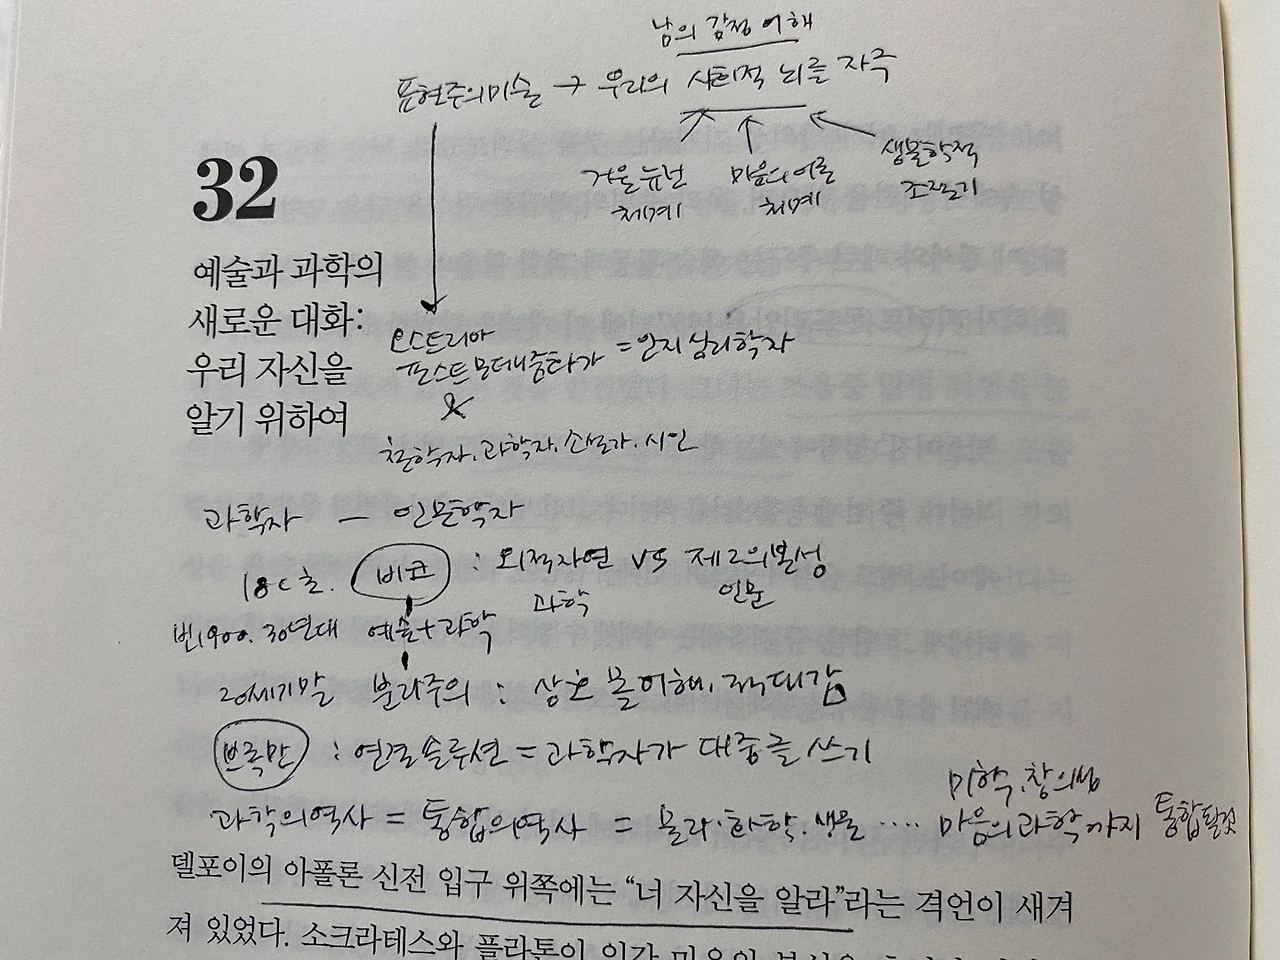 남의 감정 이해
표현주의미술 → 우리의 사회적 뇌를 자극
거울뉴런 체계
마음의 이론 체계
생물학적 조절기
32
예술과 과학의
새로운 대화:
우리 자신을
알기 위하여
오스트리아
포스트모더니즘화가 = 인지심리학자
&
철학자. 과학자. 소설가. 시인
과학자 — 인문학자
18c초. 비코 : 외적자연 VS 제2의본성
과학 인문
빈1900. 30년대 예술+과학
20세기말 분리주의 : 상호 몰이해. 적대감
브록만 : 연결솔루션 = 과학자가 대중글 쓰기
미학. 창의성
과학의역사 = 통합의역사 = 물리·화학. 생물 .... 마음의과학까지 통합될것
델포이의 아폴론 신전 입구 위쪽에는 “너 자신을 알라”라는 격언이 새겨
져 있었다. 소크라테스와 플라톤이 인간 마음의 본성을